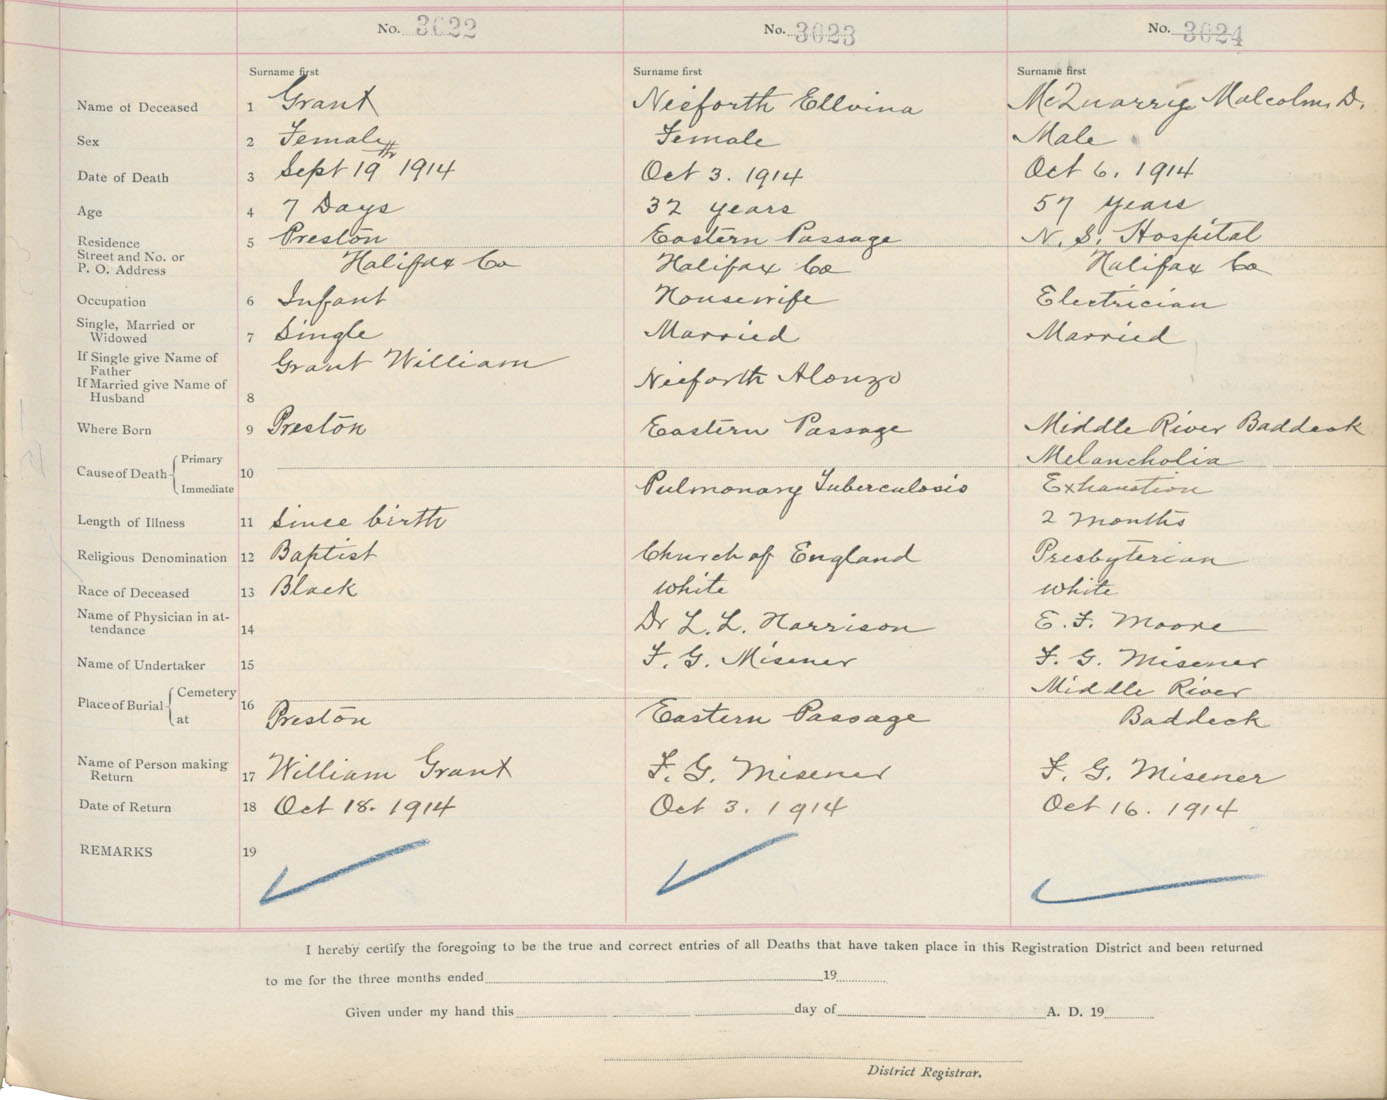 No. 3022 No. 3023 No. 3024
Surname first Surname first Surname first
Name of Deceased 1 Grant Nieforth Ellvina McQuarrie Malcolm D.
Sex 2 Female Female Male
Date of Death 3 Sept 19th 1914 Oct 3. 1914 Oct 6. 1914
Age 4 7 Days 32 years 57 years
Residence 5 Preston Eastern Passage N. S. Hospital
Street and No. or
P. O. Address Halifax Co Halifax Co Halifax Co
Occupation 6 Infant Housewife Electrician
Single, Married or
Widowed 7 Single Married Married
If Single give Name of
Father Grant William
If Married give Name of
Husband 8 Nieforth Alonzo
Where Born 9 Preston Eastern Passage Middle River Baddeck
Cause of Death Primary 10 Melancholia
Immediate Pulmonary Tuberculosis Exhaustion
Length of Illness 11 Since birth 2 months
Religious Denomination 12 Baptist Church of England Presbyterian
Race of Deceased 13 Black White White
Name of Physician in at-
tendance 14 Dr L. L. Harrison E. F. Moore
Name of Undertaker 15 F. G. Misener F. G. Misener
Place of Burial Cemetery 16 Middle River
at Preston Eastern Passage Baddeck
Name of Person making
Return 17 William Grant F. G. Misener F. G. Misener
Date of Return 18 Oct 18. 1914 Oct 3. 1914 Oct 16. 1914
REMARKS 19
I hereby certify the foregoing to be the true and correct entries of all Deaths that have taken place in this Registration District and been returned
to me for the three months ended 19
Given under my hand this day of A. D. 19
District Registrar.